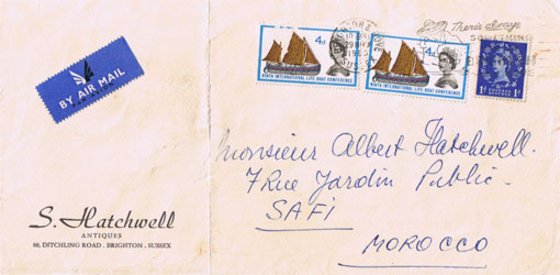 BY AIR MAIL
4d
NINTH INTERNATIONAL LIFE-BOAT CONFERENCE
4d
NINTH INTERNATIONAL LIFE-BOAT CONFERENCE
1d POSTAGE REVENUE 1d
There's always
SUSSEX
Monsieur Albert Hatchwell.
7 Rue Jardin Public.
SAFI
MOROCCO
S. Hatchwell
ANTIQUES
68, DITCHLING ROAD . BRIGHTON . SUSSEX